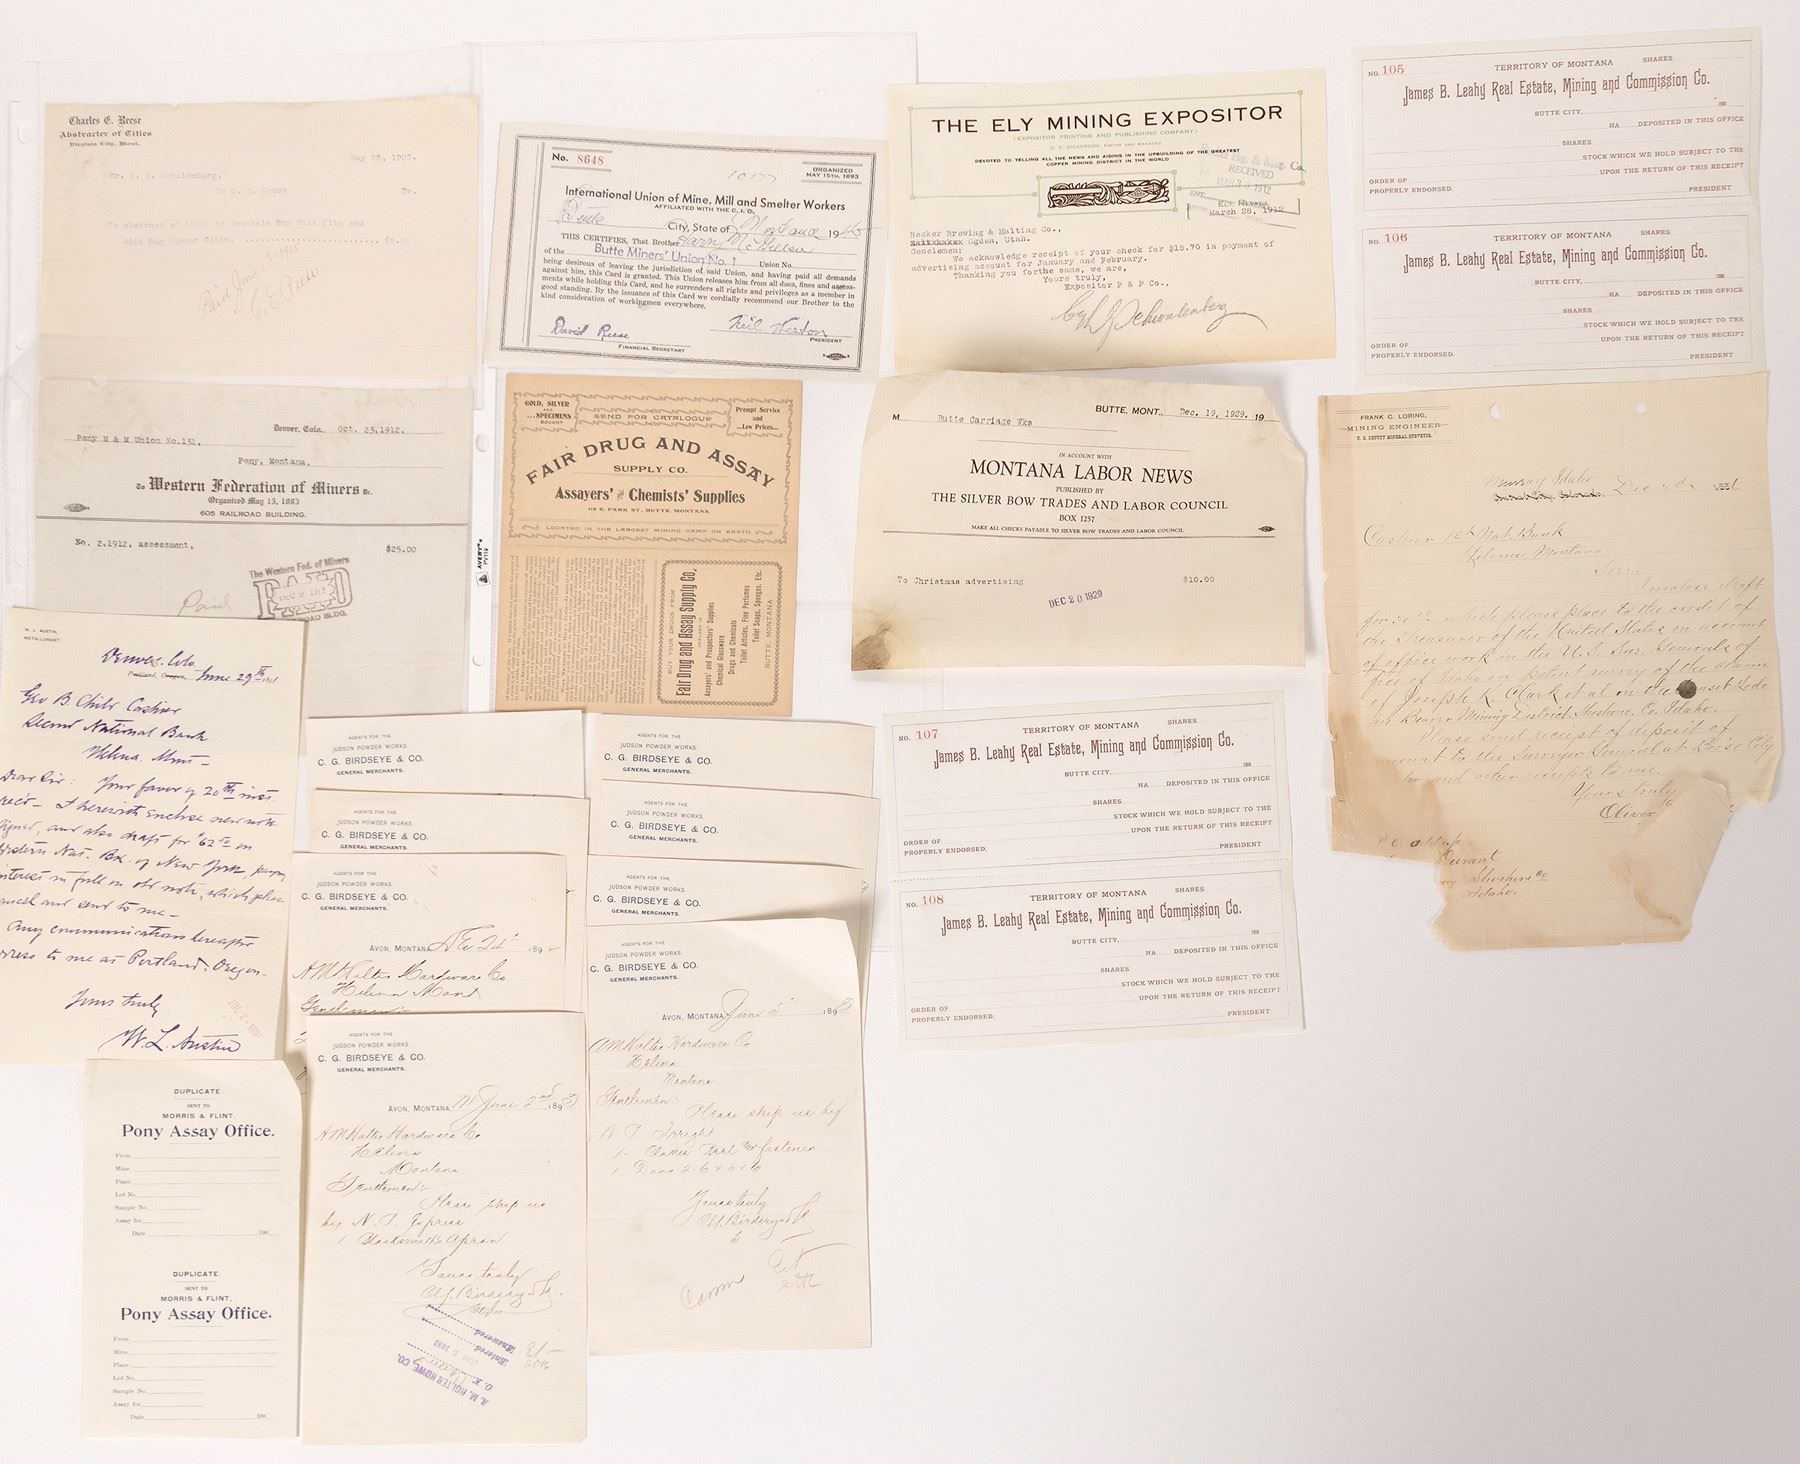 Charles E. Reese
Abstracter of Titles
Virginia City, Mont.
May 25, 1905.
Mr. C. E. Schulenburg.
To C. E. Reese. Dr.
To abstract of title to Mountain Boy Mill Site and
Gold Bug Placer Claim. $5.00
Paid June
C. E. Reese
No. 8648
ORGANIZED
MAY 15TH, 1893
10177
International Union of Mine, Mill and Smelter Workers
AFFILIATED WITH THE C. I. O.
Butte City, State of Montana 19
THIS CERTIFIES, That Brother
of the Butte Miners' Union No. 1 Union No.
being desirous of leaving the jurisdiction of said Union, and having paid all demands
against him, this Card is granted. This Union releases him from all dues, fines and assess-
ments while holding this Card, and he surrenders all rights and privileges as a member in
good standing. By the issuance of this Card we cordially recommend our Brother to the
kind consideration of workingmen everywhere.
David Reese
FINANCIAL SECRETARY
PRESIDENT
THE ELY MINING EXPOSITOR
(EXPOSITOR PRINTING AND PUBLISHING COMPANY)
D. S. DICKERSON, EDITOR AND MANAGER
DEVOTED TO TELLING ALL THE NEWS AND AIDING IN THE UPBUILDING OF THE GREATEST
COPPER MINING DISTRICT IN THE WORLD
RECEIVED
1912
ELY, NEVADA
March 28, 1912
Becker Brewing & Malting Co.,
Ogden, Utah.
Genelemen:
We acknowledge receipt of your check for $15.70 in payment of
advertising account for January and February.
Thanking you forthe same, we are,
Yours truly,
Expositor P & P Co.,
NO. 105
TERRITORY OF MONTANA SHARES
James B. Leahy Real Estate, Mining and Commission Co.
BUTTE CITY, 188
HA DEPOSITED IN THIS OFFICE
SHARES
STOCK WHICH WE HOLD SUBJECT TO THE
ORDER OF UPON THE RETURN OF THIS RECEIPT
PROPERLY ENDORSED. PRESIDENT
NO. 106
TERRITORY OF MONTANA SHARES
James B. Leahy Real Estate, Mining and Commission Co.
BUTTE CITY, 188
HA DEPOSITED IN THIS OFFICE
SHARES
STOCK WHICH WE HOLD SUBJECT TO THE
ORDER OF UPON THE RETURN OF THIS RECEIPT
PROPERLY ENDORSED. PRESIDENT
Denver, Colo. Oct. 23,1912.
Pony M & M Union No.131,
Pony, Montana.
To Western Federation of Miners Dr.
Organized May 15, 1893
605 RAILROAD BUILDING.
No. 2.1912, assessment, $25.00
The Western Fed. of Miners
PAID
BLDG.
Paid
AVERY®
PV119
GOLD, SILVER
AND
...SPECIMENS
BOUGHT
SEND FOR CATALOGUE
Prompt Service
and
...Low Prices...
FAIR DRUG AND ASSAY
SUPPLY CO.
Assayers' and Chemists' Supplies
116 E. PARK ST. BUTTE, MONTANA
LOCATED IN THE LARGEST MINING CAMP ON EARTH
BUY YOUR DRUGS FROM
Fair Drug and Assay Supply Co.
Assayers' and Prospectors' Supplies
Chemical Glassware
Drugs and Chemicals
Toilet Articles, Fine Perfumes
Toilet Soaps, Sponges, Etc.
BUTTE MONTANA
M Butte Carriage Wks
BUTTE, MONT., Dec. 19, 1929. 19
IN ACCOUNT WITH
MONTANA LABOR NEWS
PUBLISHED BY
THE SILVER BOW TRADES AND LABOR COUNCIL
BOX 1257
MAKE ALL CHECKS PAYABLE TO SILVER BOW TRADES AND LABOR COUNCIL
To Christmas advertising $10.00
DEC 20 1929
FRANK C. LORING,
MINING ENGINEER
U. S. DEPUTY MINERAL SURVEYOR.
Murray Idaho
Cashier 1st Nat. Bank
Helena, Montana
Sir:-
I inclose draft
for which please place to the credit of
the Treasurer of the United States on account
of office work in the U.S. Sur. Generals of
fice of Idaho on patent survey of the claim
of Joseph K. Clark et al on the Sunset Lode
Beaver Mining District, Shoshone, Co. Idaho.
Please send receipt of deposit of
amount to the Surveyor General at Boise City
and other receipts to me.
Yours truly
Oliver
P.O. address
Durant
Shoshone Co
Idaho.
W. L. AUSTIN,
METALLURGIST.
Denver, Colo.
Portland, Oregon, June 29th
Geo B. Child Cashier
Second National Bank
Helena, Mont-
Dear Sir: Your favor of 20th inst.
rec'd- I herewith enclose new note
signed, and also draft for $62.50 on
Western Nat. Bk. of New York, paying
interest in full on old note, which please
cancel and send to me-
Any communications hereafter
address to me at Portland, Oregon-
Yours truly
W. L. Austin
AGENTS FOR THE
JUDSON POWDER WORKS.
C. G. BIRDSEYE & CO.
GENERAL MERCHANTS.
AGENTS FOR THE
JUDSON POWDER WORKS.
C. G. BIRDSEYE & CO.
GENERAL MERCHANTS.
AGENTS FOR THE
JUDSON POWDER WORKS.
C. G. BIRDSEYE & CO.
GENERAL MERCHANTS.
AGENTS FOR THE
JUDSON POWDER WORKS.
C. G. BIRDSEYE & CO.
GENERAL MERCHANTS.
AGENTS FOR THE
JUDSON POWDER WORKS.
C. G. BIRDSEYE & CO.
GENERAL MERCHANTS.
AVON, MONTANA, 189
A M Holter Hardware Co
Helena Mont
Gentlemen:-
AGENTS FOR THE
JUDSON POWDER WORKS.
C. G. BIRDSEYE & CO.
GENERAL MERCHANTS.
AGENTS FOR THE
JUDSON POWDER WORKS.
C. G. BIRDSEYE & CO.
GENERAL MERCHANTS.
AVON, MONTANA, June 5" 1893
A M Holter Hardware Co
Helena
Montana
Gentlemen:-
Please ship us by
N. P. Freight
1 Door 2-6 x 6 x 6
Yours truly
C. G. Birdseye & Co
AGENTS FOR THE
JUDSON POWDER WORKS.
C. G. BIRDSEYE & CO.
GENERAL MERCHANTS.
AVON, MONTANA, June 2nd 1893
A M Holter Hardware Co
Helena
Montana
Gentlemen:-
Please ship us
by N. P. Express
1 Blacksmiths Apron
Yours truly
C. G. Birdseye & Co.
A. M. HOLTER HDWE CO.
O. K.
Entered
Answered
NO. 107
TERRITORY OF MONTANA SHARES
James B. Leahy Real Estate, Mining and Commission Co.
BUTTE CITY, 188
HA DEPOSITED IN THIS OFFICE
SHARES
STOCK WHICH WE HOLD SUBJECT TO THE
ORDER OF UPON THE RETURN OF THIS RECEIPT
PROPERLY ENDORSED. PRESIDENT
NO. 108
TERRITORY OF MONTANA SHARES
James B. Leahy Real Estate, Mining and Commission Co.
BUTTE CITY, 188
HA DEPOSITED IN THIS OFFICE
SHARES
STOCK WHICH WE HOLD SUBJECT TO THE
ORDER OF UPON THE RETURN OF THIS RECEIPT
PROPERLY ENDORSED. PRESIDENT
DUPLICATE
SENT TO
MORRIS & FLINT.
Pony Assay Office.
From
Mine
Place
Lot No.
Sample No.
Assay for
Date 190
DUPLICATE
SENT TO
MORRIS & FLINT,
Pony Assay Office.
From
Mine
Place
Lot No.
Sample No.
Assay for
Date 190